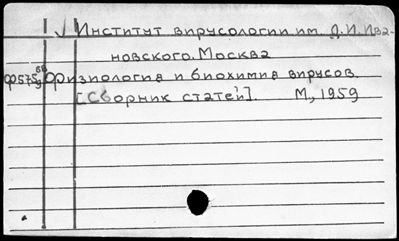 Институт вирусологии им. Д.И. Ива-
новского. Москва
Физиология и биохимия вирусов.
[Сборник статей]. М, 1959